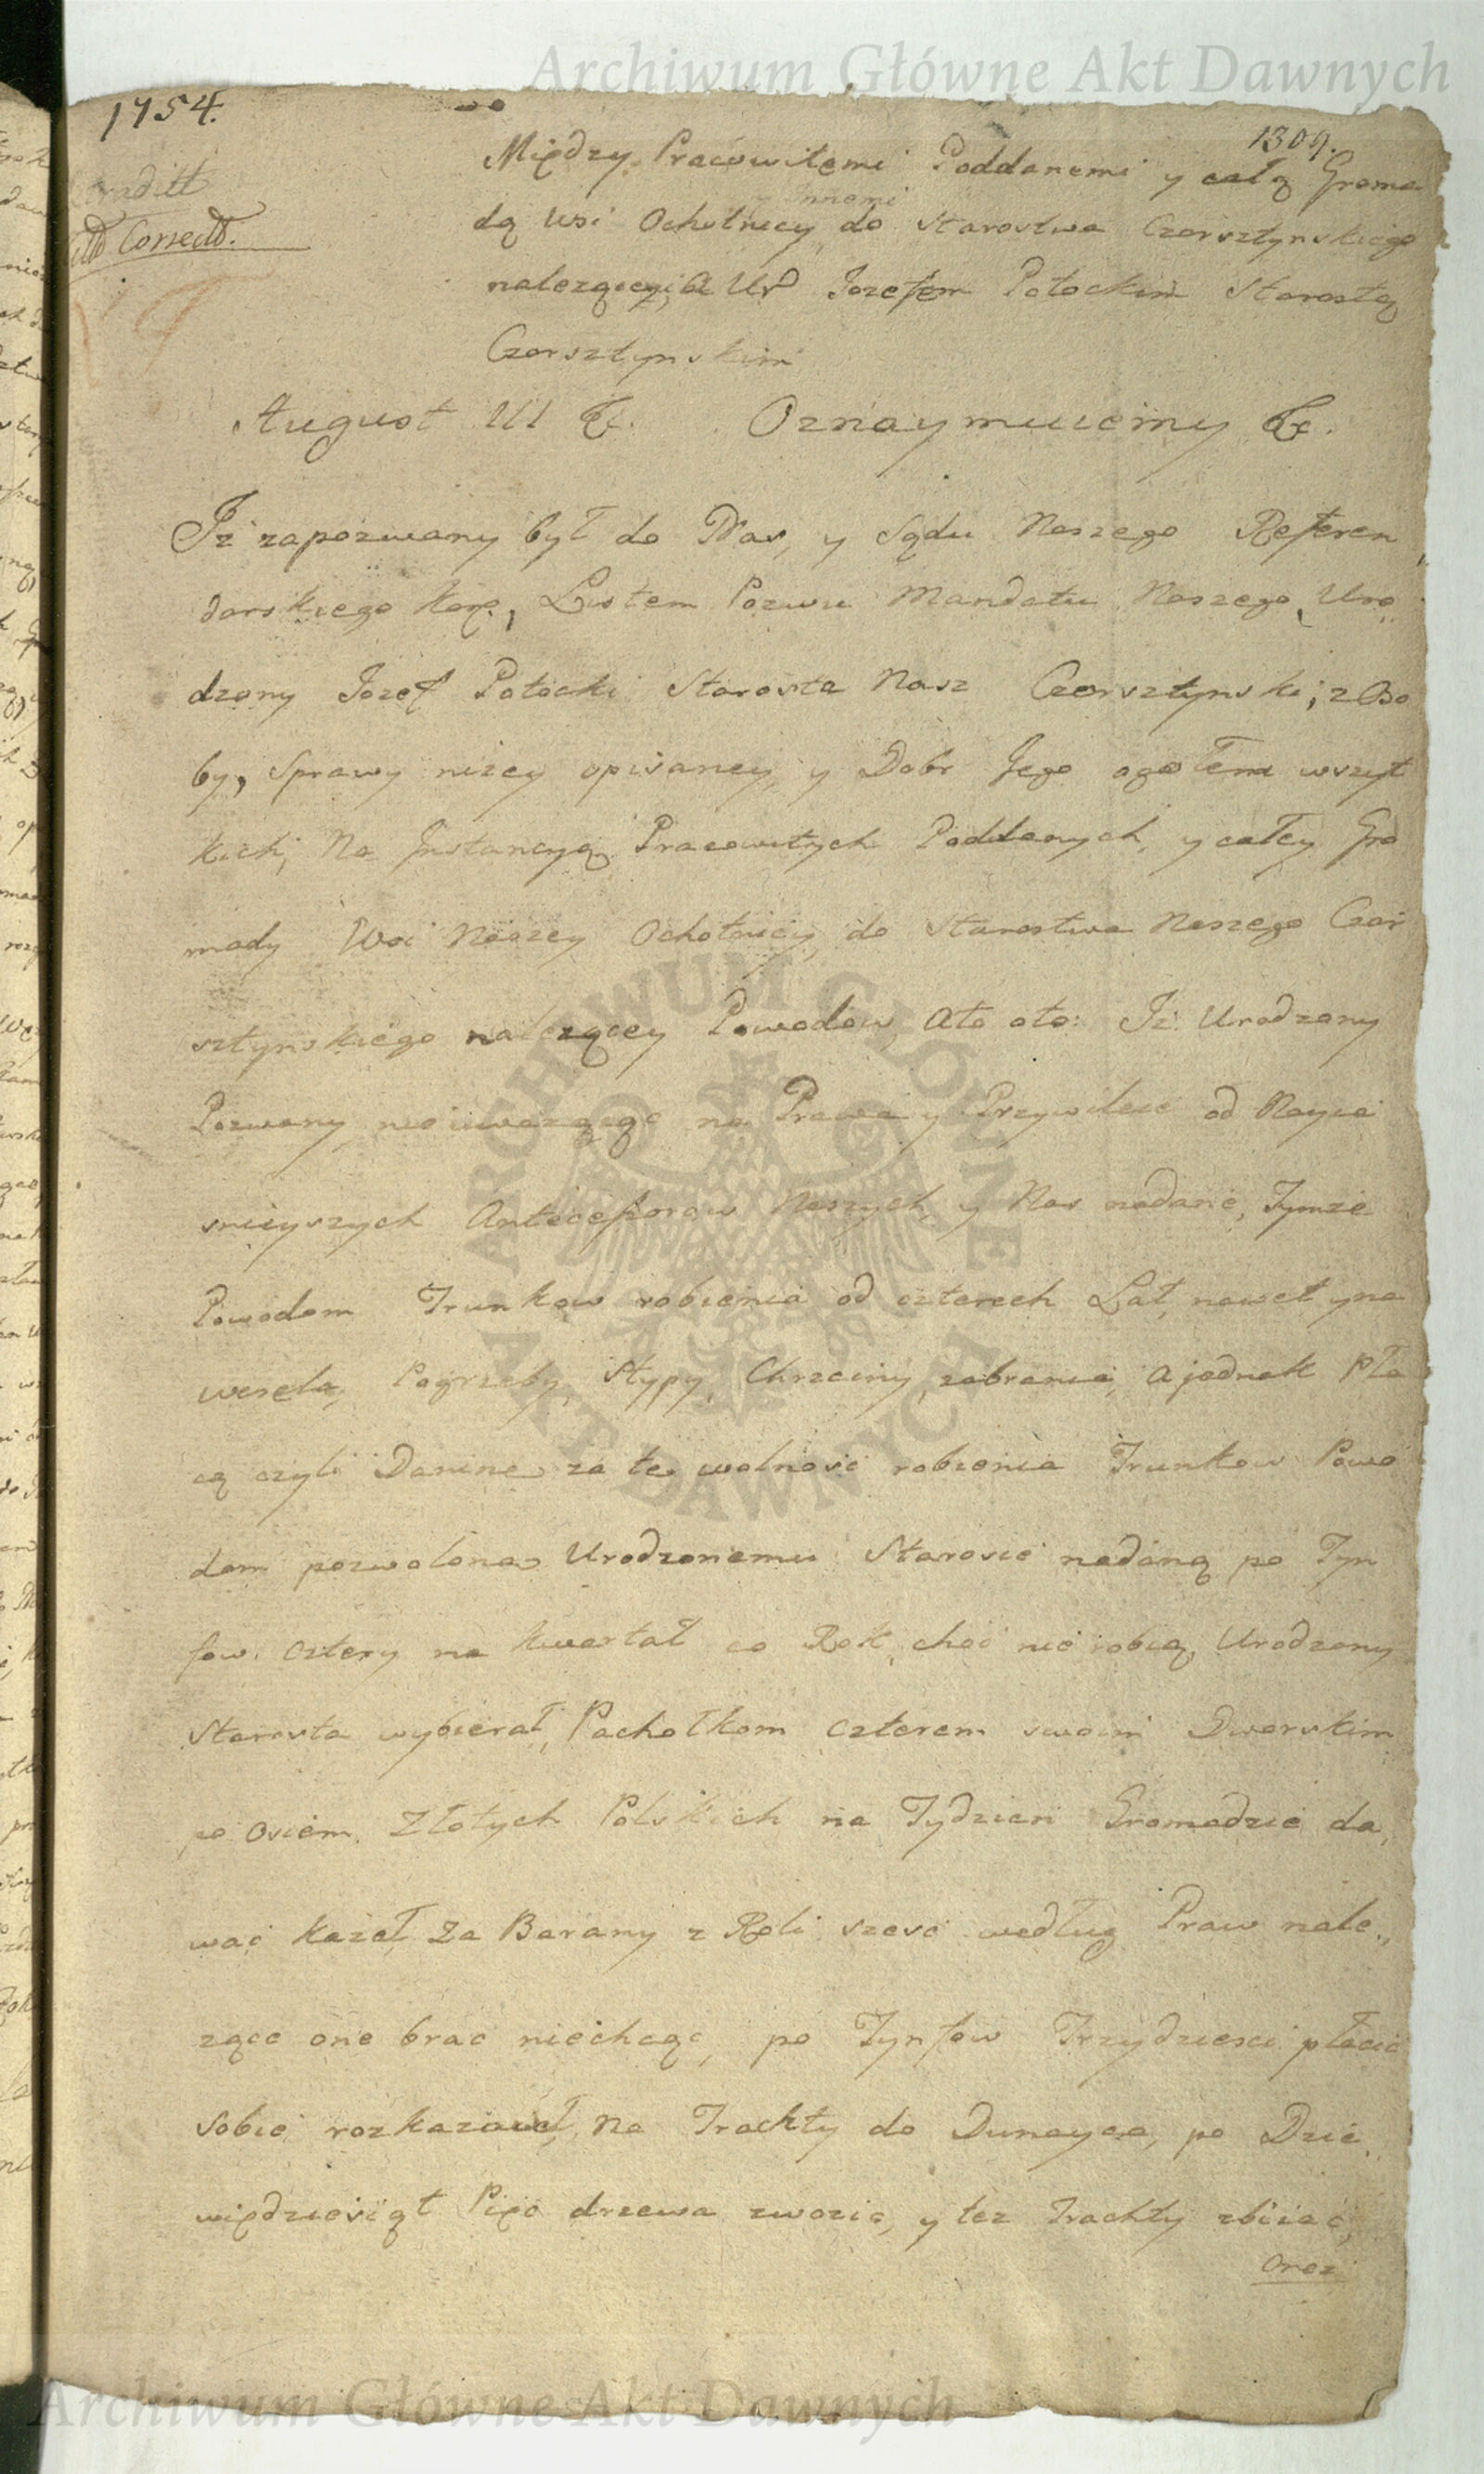 Archiwum Główne Akt Dawnych
1754.
1309.
Correctt.
Między Pracowitemi Poddanemi y całą Groma
y Innemi
dą wsi Ochotnicy, do Starostwa Czorsztynskiego
nalezącey, A Ur Jozefem Potockim Starostą
Czorsztynskim
August III &. Oznaymuiemy &.
Iż zapozwany był do Nas, y Sądu Naszego Referen
darskiego Kor., Listem Pozwu Mandatu Naszego, Uro
dzony Jozef Potocki Starosta Nasz Czorsztynski, z Oso
by, Sprawy niżey opisaney, y Dobr Jego ogołem wszyt
kich, Na Instancyą Pracowitych Poddanych, y całey Gro
mady Wsi Naszey Ochotnicy, do Starostwa Naszego Czor
sztynskiego nalezącey Powodow, Ato oto: Iż Urodzony
Pozwany nieuwazaiąc na Prawa y Przywileie od Nayia
snieyszych Antecessorow Naszych, y Nas nadane, Tymze
Powodom Trunkow robienia od czterech Lat, nawet y na
wesela, Pogrzeby, Stypy, Chrzciny, zabrania, A jednak Pła
cą czyli Daninę za tę wolność robienia Trunkow Powo
dom pozwoloną Urodzonemu Staroscie nadaną po Tyn
fow cztery na kwartał co Rok, choć nie robią, Urodzony
Starosta wybierał, Pachołkom czterem swoim Dworskim
po osiem Złotych Polskich na Tydzien Gromadzie da,
wać kazał, Za Barany z Roli szesć według Praw nale,,
zące one brac niechcąc, po Tynfow Trzydziesci płacić
Sobie rozkazował, Na Trachty do Dunayca, po Dzie,
więdziesiąt Pięc drzewa zwozić, y tez Trachty zbiiać,
oraz
ARCHIWUM GŁÓWNE AKT DAWNYCH
Archiwum Główne Akt Dawnych